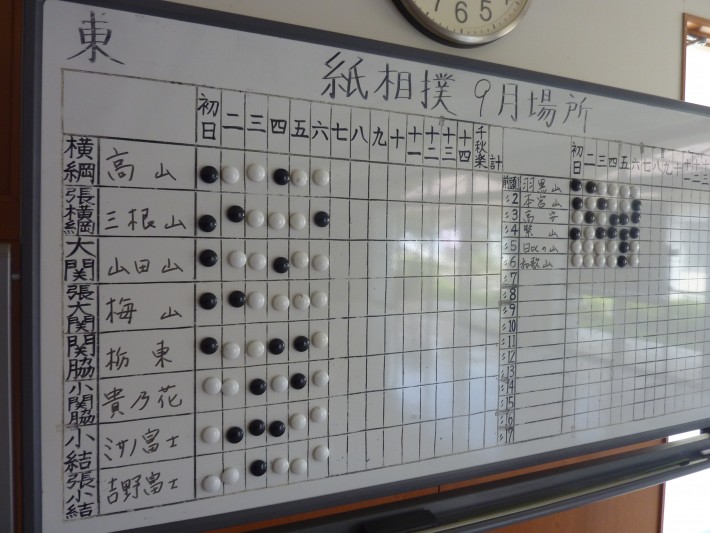 7 6 5
東
紙相撲 9月場所
初日 二 三 四 五 六 七 八 九 十 十一 十二 十三 十四 千秋楽 計
横綱 高山
張横綱 三根山
大関 山田山
張大関 梅山
関脇 栃東
小関脇 貴乃花
小結 汐ノ富士
張小結 吉野富士
初日 二 三 四 五 六 七 八 九 十 十一 十二 十三
前頭 羽黒山
〃2 本宮山
〃3
〃4
〃5 日ヒの山
〃6 和歌山
〃7
〃8
〃9
〃10
〃11
〃12
〃13
〃14
〃15
〃16
〃17